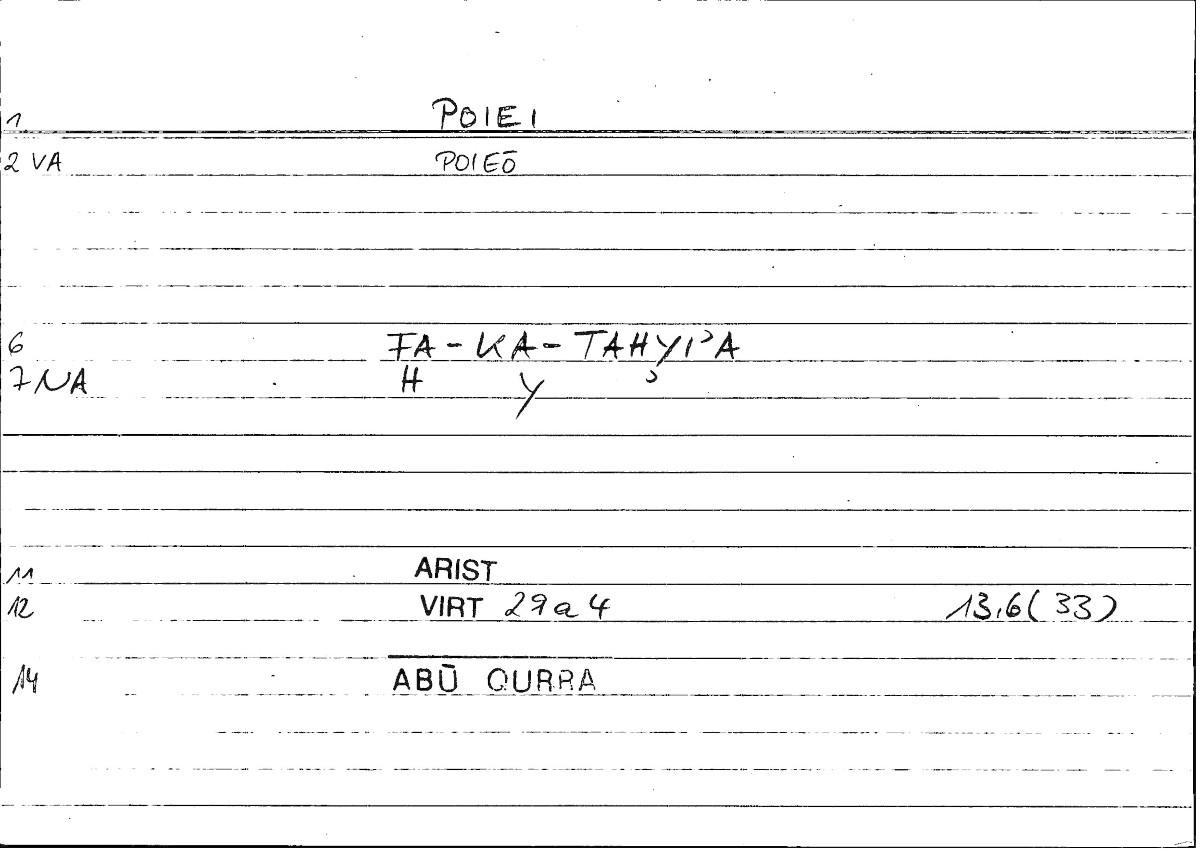 1 POIEI
2 VA POIEŌ
6 FA - KA - TAHYIʾA
7 NA H Y ʾ
11 ARIST
12 VIRT 29a4 13,6(33)
14 ABŪ QURRA